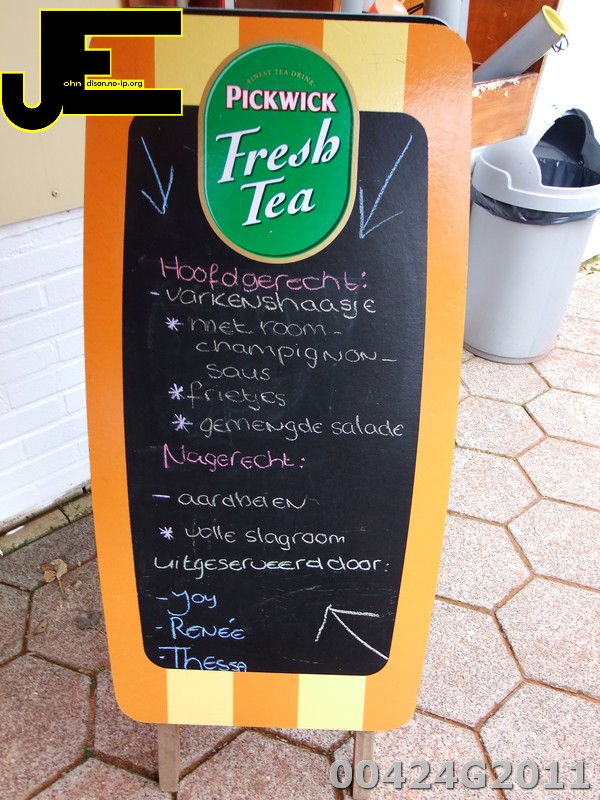 JE
ohn disan.no-ip.org
FINEST TEA DRINK
PICKWICK
Fresh
Tea
Hoofdgerecht:
- varkenshaasje
* met room-
champignon-
saus
* frietjes
* gemengde salade
Nagerecht:
- aardbeien
* volle slagroom
uitgeserveerd door:
- Joy
- RENÉE
- THESSA
00424G2011